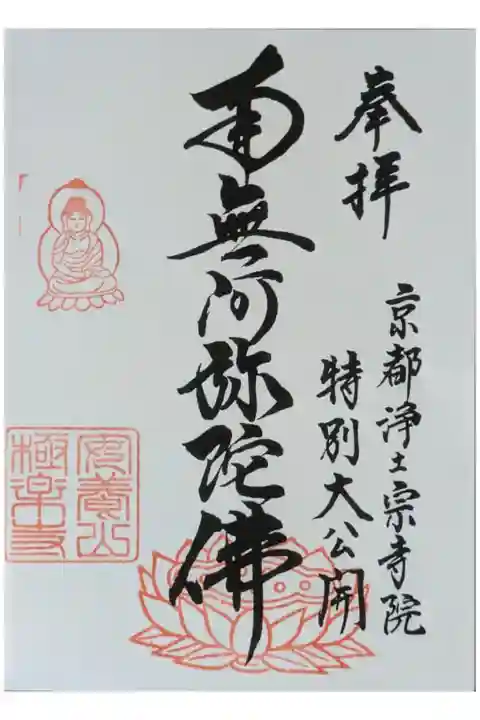 奉拝
京都浄土宗寺院
特別大公開
南無阿弥陀佛
安養山
極楽寺